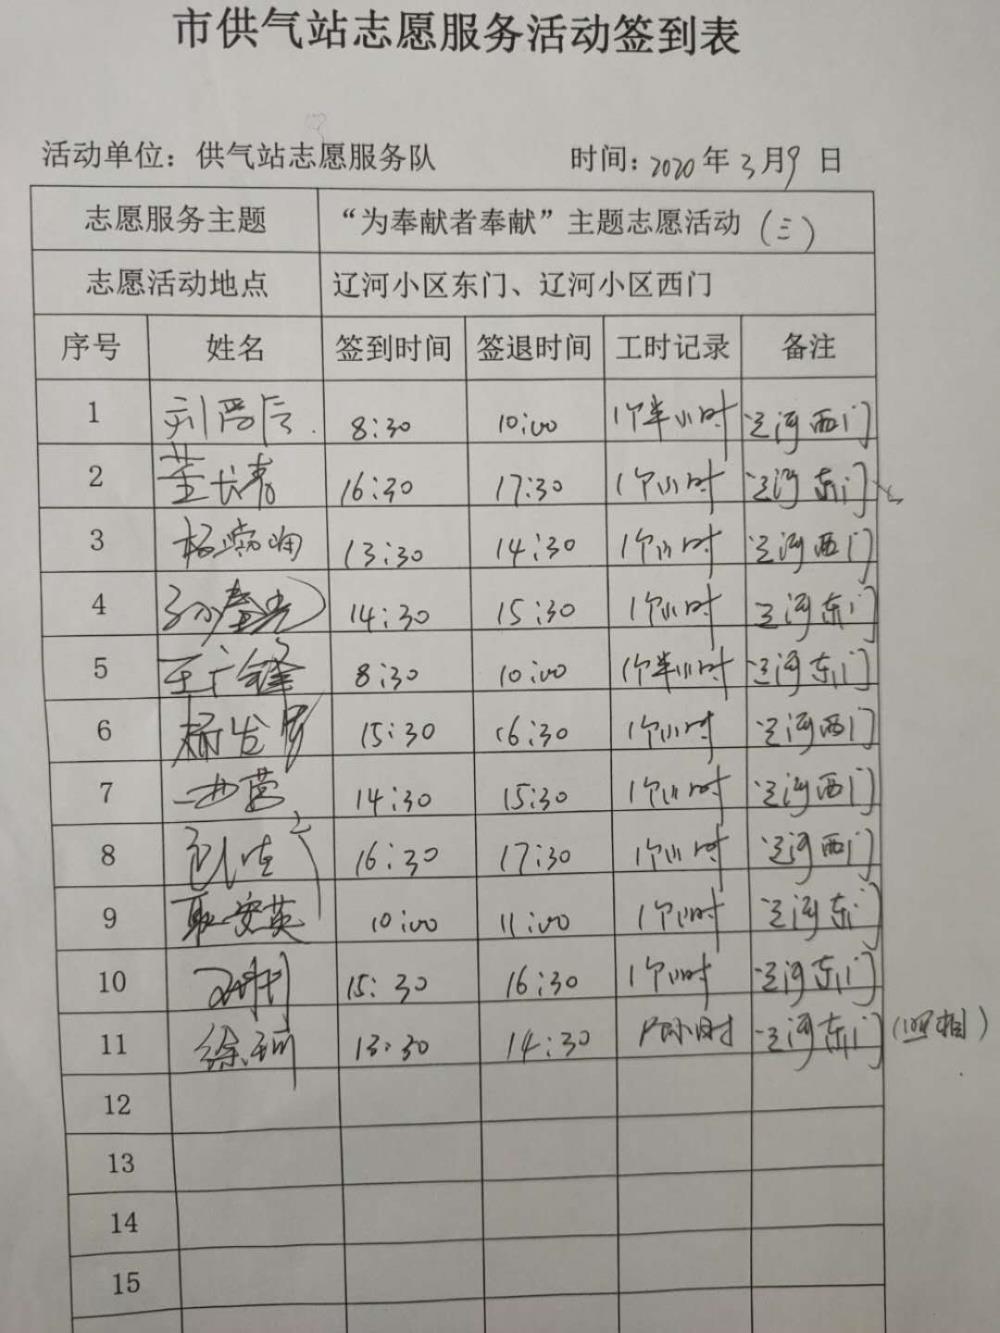 市供气站志愿服务活动签到表
活动单位：供气站志愿服务队 时间：2020年3月9日
志愿服务主题 “为奉献者奉献”主题志愿活动（三）
志愿活动地点 辽河小区东门、辽河小区西门
序号 姓名 签到时间 签退时间 工时记录 备注
1 8:30 10:00 1个半小时 辽河西门
2 董长春 16:30 17:30 1个小时 辽河东门
3 13:30 14:30 1个小时 辽河西门
4 14:30 15:30 1个小时 辽河东门
5 王广锋 8:30 10:00 1个半小时 辽河东门
6 15:30 16:30 1个小时 辽河西门
7 14:30 15:30 1个小时 辽河西门
8 16:30 17:30 1个小时 辽河西门
9 耿安英 10:00 11:00 1个小时 辽河东门
10 15:30 16:30 1个小时 辽河东门
11 13:30 14:30 1个小时 辽河东门（照相）
12
13
14
15